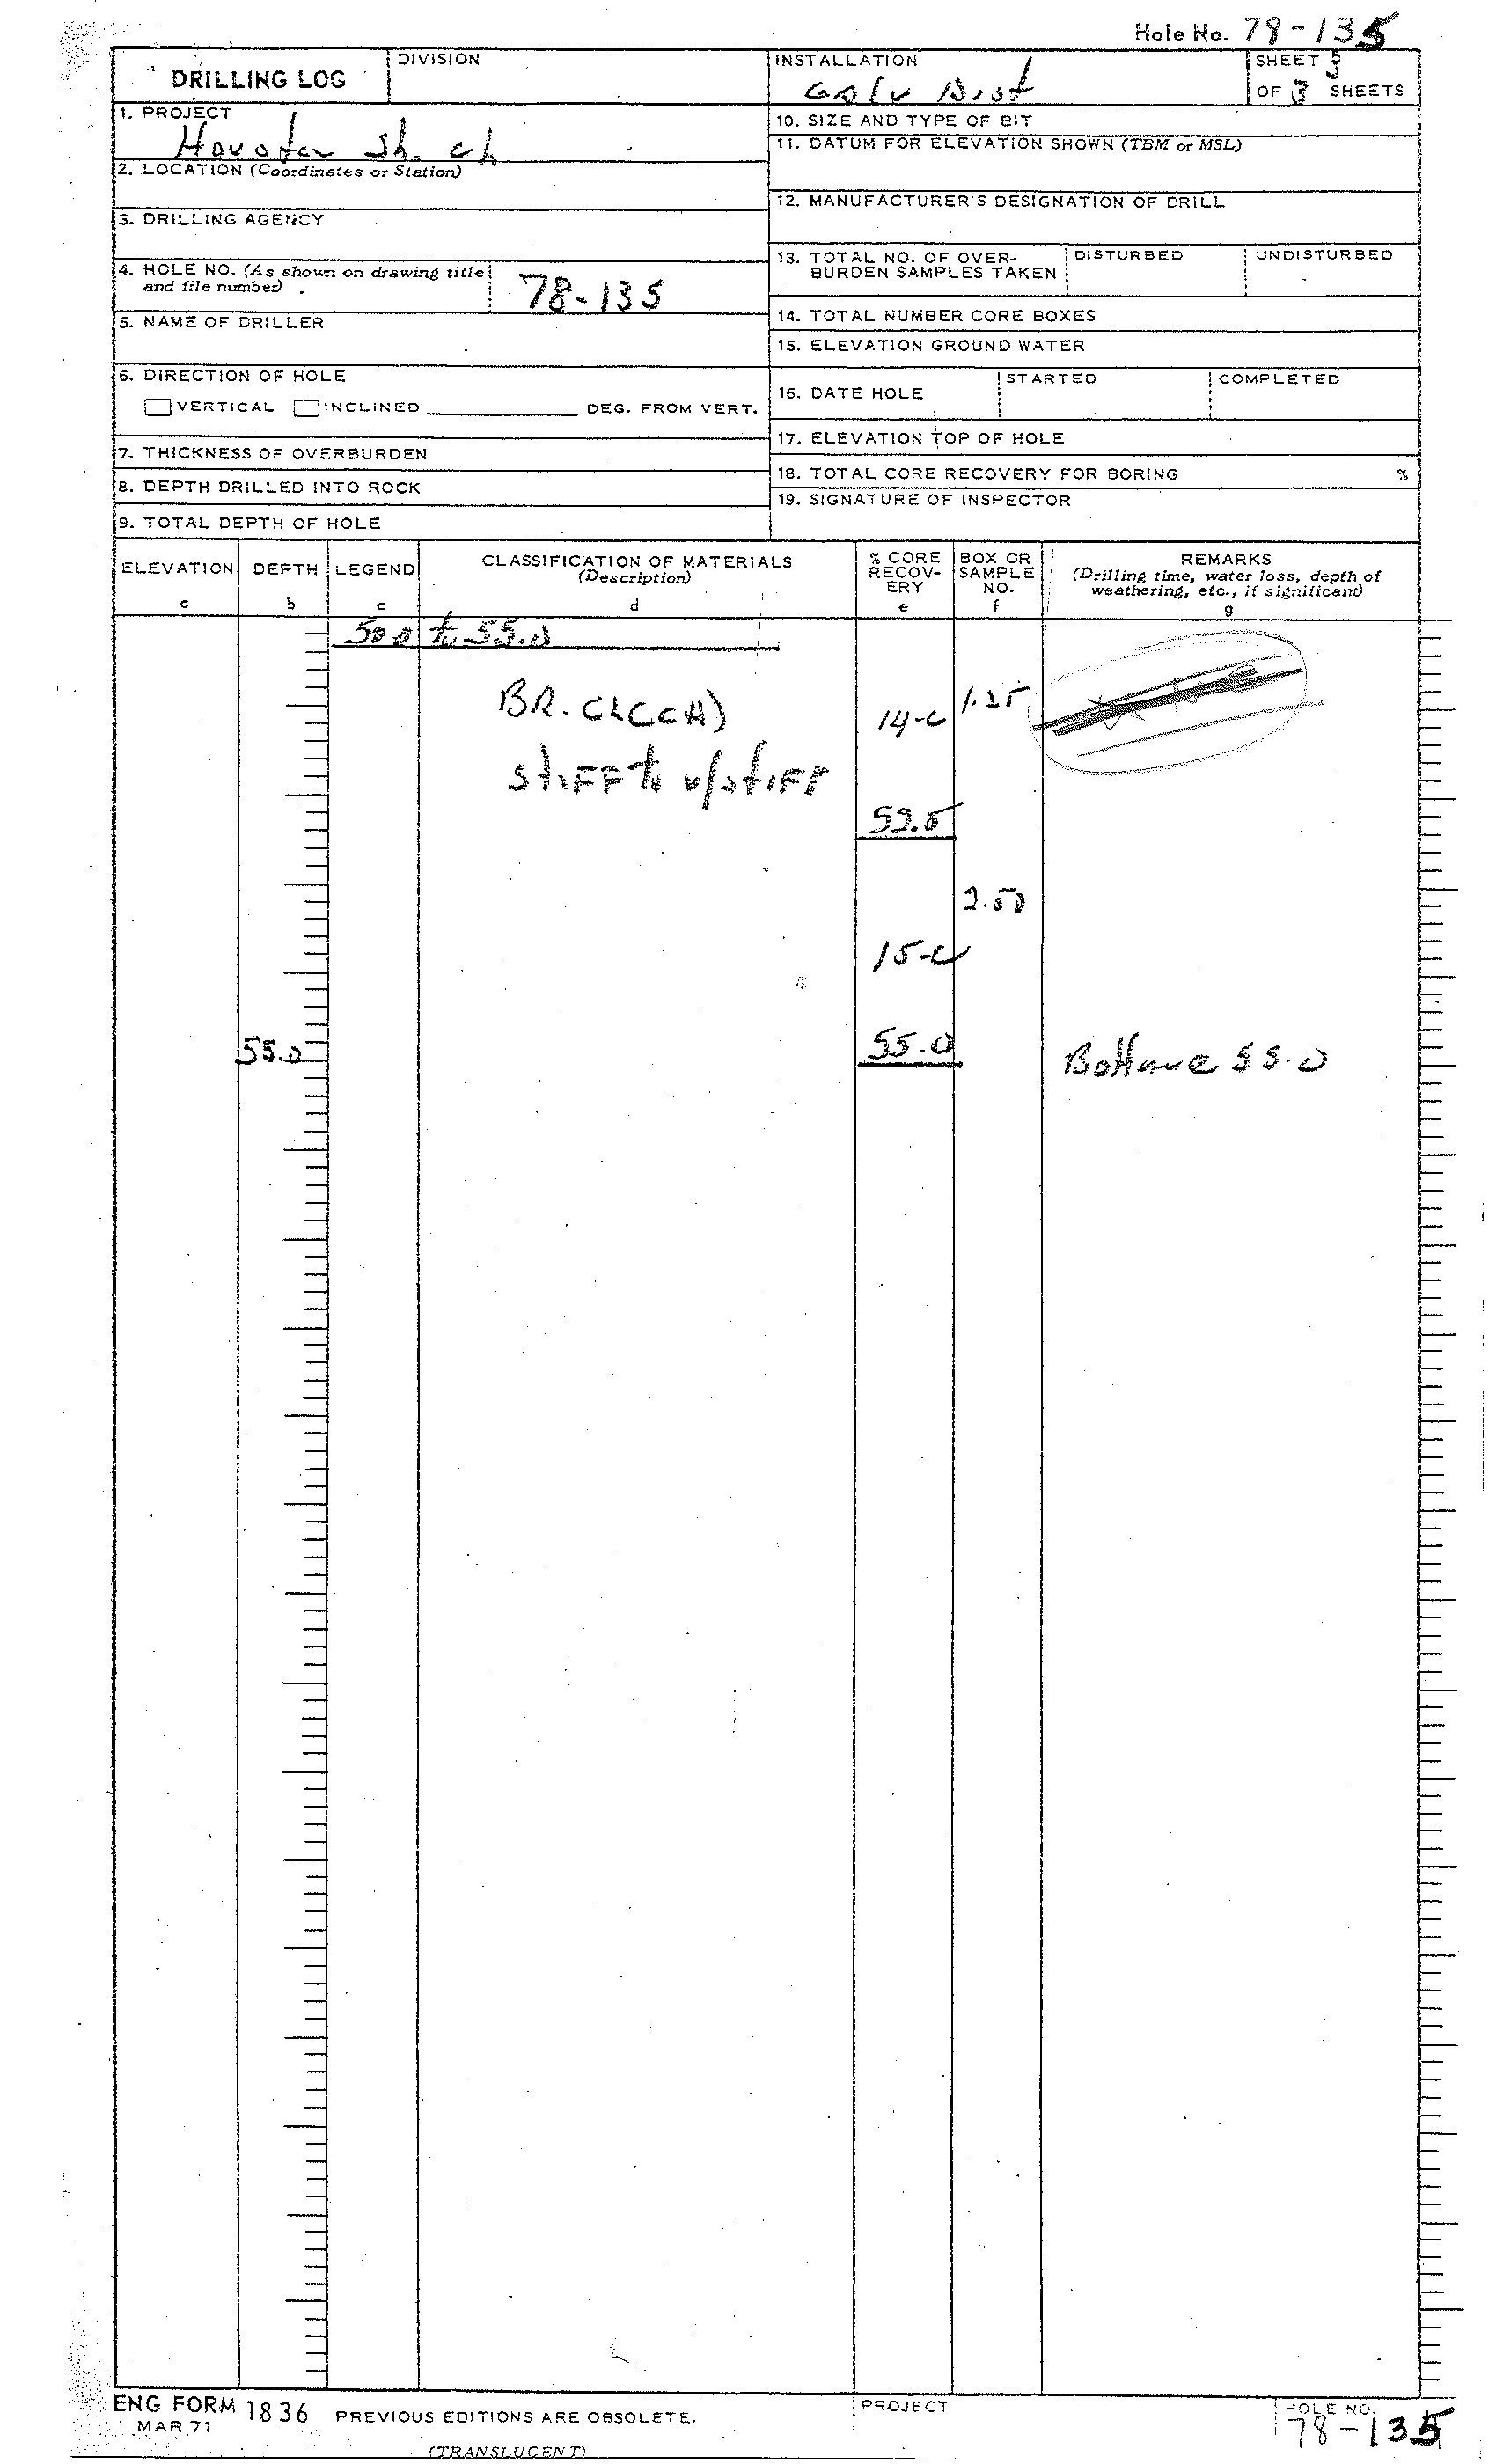 Hole No. 78-135
DRILLING LOG
DIVISION
INSTALLATION
Galv Dist
SHEET 3
OF 3 SHEETS
1. PROJECT
Houston Sh. Ch
2. LOCATION (Coordinates or Station)
3. DRILLING AGENCY
4. HOLE NO. (As shown on drawing title
and file number)
78-135
5. NAME OF DRILLER
6. DIRECTION OF HOLE
VERTICAL INCLINED DEG. FROM VERT.
7. THICKNESS OF OVERBURDEN
8. DEPTH DRILLED INTO ROCK
9. TOTAL DEPTH OF HOLE
10. SIZE AND TYPE OF BIT
11. DATUM FOR ELEVATION SHOWN (TBM or MSL)
12. MANUFACTURER'S DESIGNATION OF DRILL
13. TOTAL NO. OF OVER-
BURDEN SAMPLES TAKEN
DISTURBED
UNDISTURBED
14. TOTAL NUMBER CORE BOXES
15. ELEVATION GROUND WATER
16. DATE HOLE
STARTED
COMPLETED
17. ELEVATION TOP OF HOLE
18. TOTAL CORE RECOVERY FOR BORING %
19. SIGNATURE OF INSPECTOR
ELEVATION
a
DEPTH
b
LEGEND
c
CLASSIFICATION OF MATERIALS
(Description)
d
% CORE
RECOV-
ERY
e
BOX OR
SAMPLE
NO.
f
REMARKS
(Drilling time, water loss, depth of
weathering, etc., if significant)
g
50.0 to 55.0
BR. CL(CH)
STIFF to v/STIFF
14-C
1.25
2.50
15-C
55.0
55.0
55.0
ENG FORM 1836
MAR 71
PREVIOUS EDITIONS ARE OBSOLETE.
(TRANSLUCENT)
PROJECT
HOLE NO.
78-135